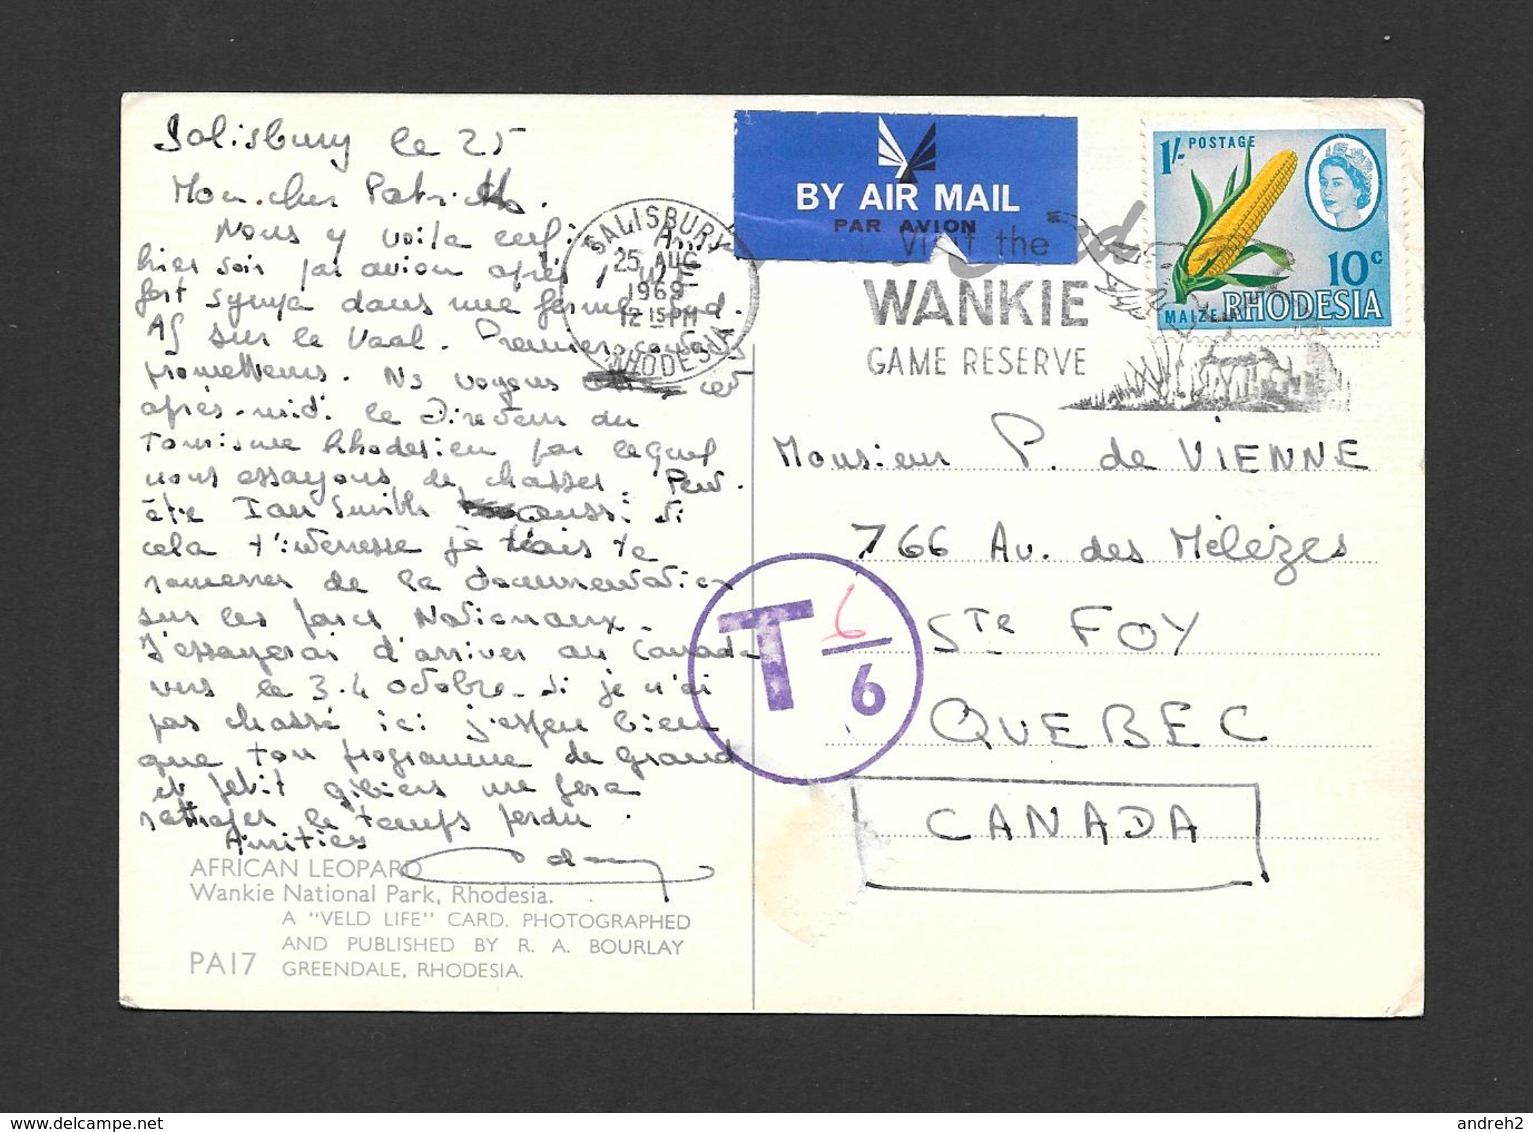 Salisbury le 25
Mon cher Patrick.
Nous y voila enfin! Arr.
hier soir par avion après 1
fort sympa dans une ferme
sur le Vaal. Premiers contacts
prometteurs. Ns voyons cet
après-midi le Directeur du
Tourisme Rhodesien par lequel
nous essayons de chasser. Peut
être Ian Smith aussi. Si
cela t'interesse je vais te
ramener de la documentation
sur les parcs Nationaux.
J'essayerai d'arriver au Canada
vers le 3.4 octobre. Si je n'ai
pas chassé ici j'espere bien
que ton programme de grand
et petit gibiers me fera
rattraper le temps perdu.
Amitiés
AFRICAN LEOPARD
Wankie National Park, Rhodesia.
A "VELD LIFE" CARD. PHOTOGRAPHED
AND PUBLISHED BY R. A. BOURLAY
PA17 GREENDALE, RHODESIA.
SALISBURY
25 AUG
1969
12 15 PM
RHODESIA
BY AIR MAIL
PAR AVION
Visit the
WANKIE
GAME RESERVE
1/- POSTAGE
10c
MAIZE RHODESIA
Monsieur P. de VIENNE
766 Av. des Mélèzes
STe FOY
QUEBEC
CANADA
T 6/6
www.delcampe.net
andreh2